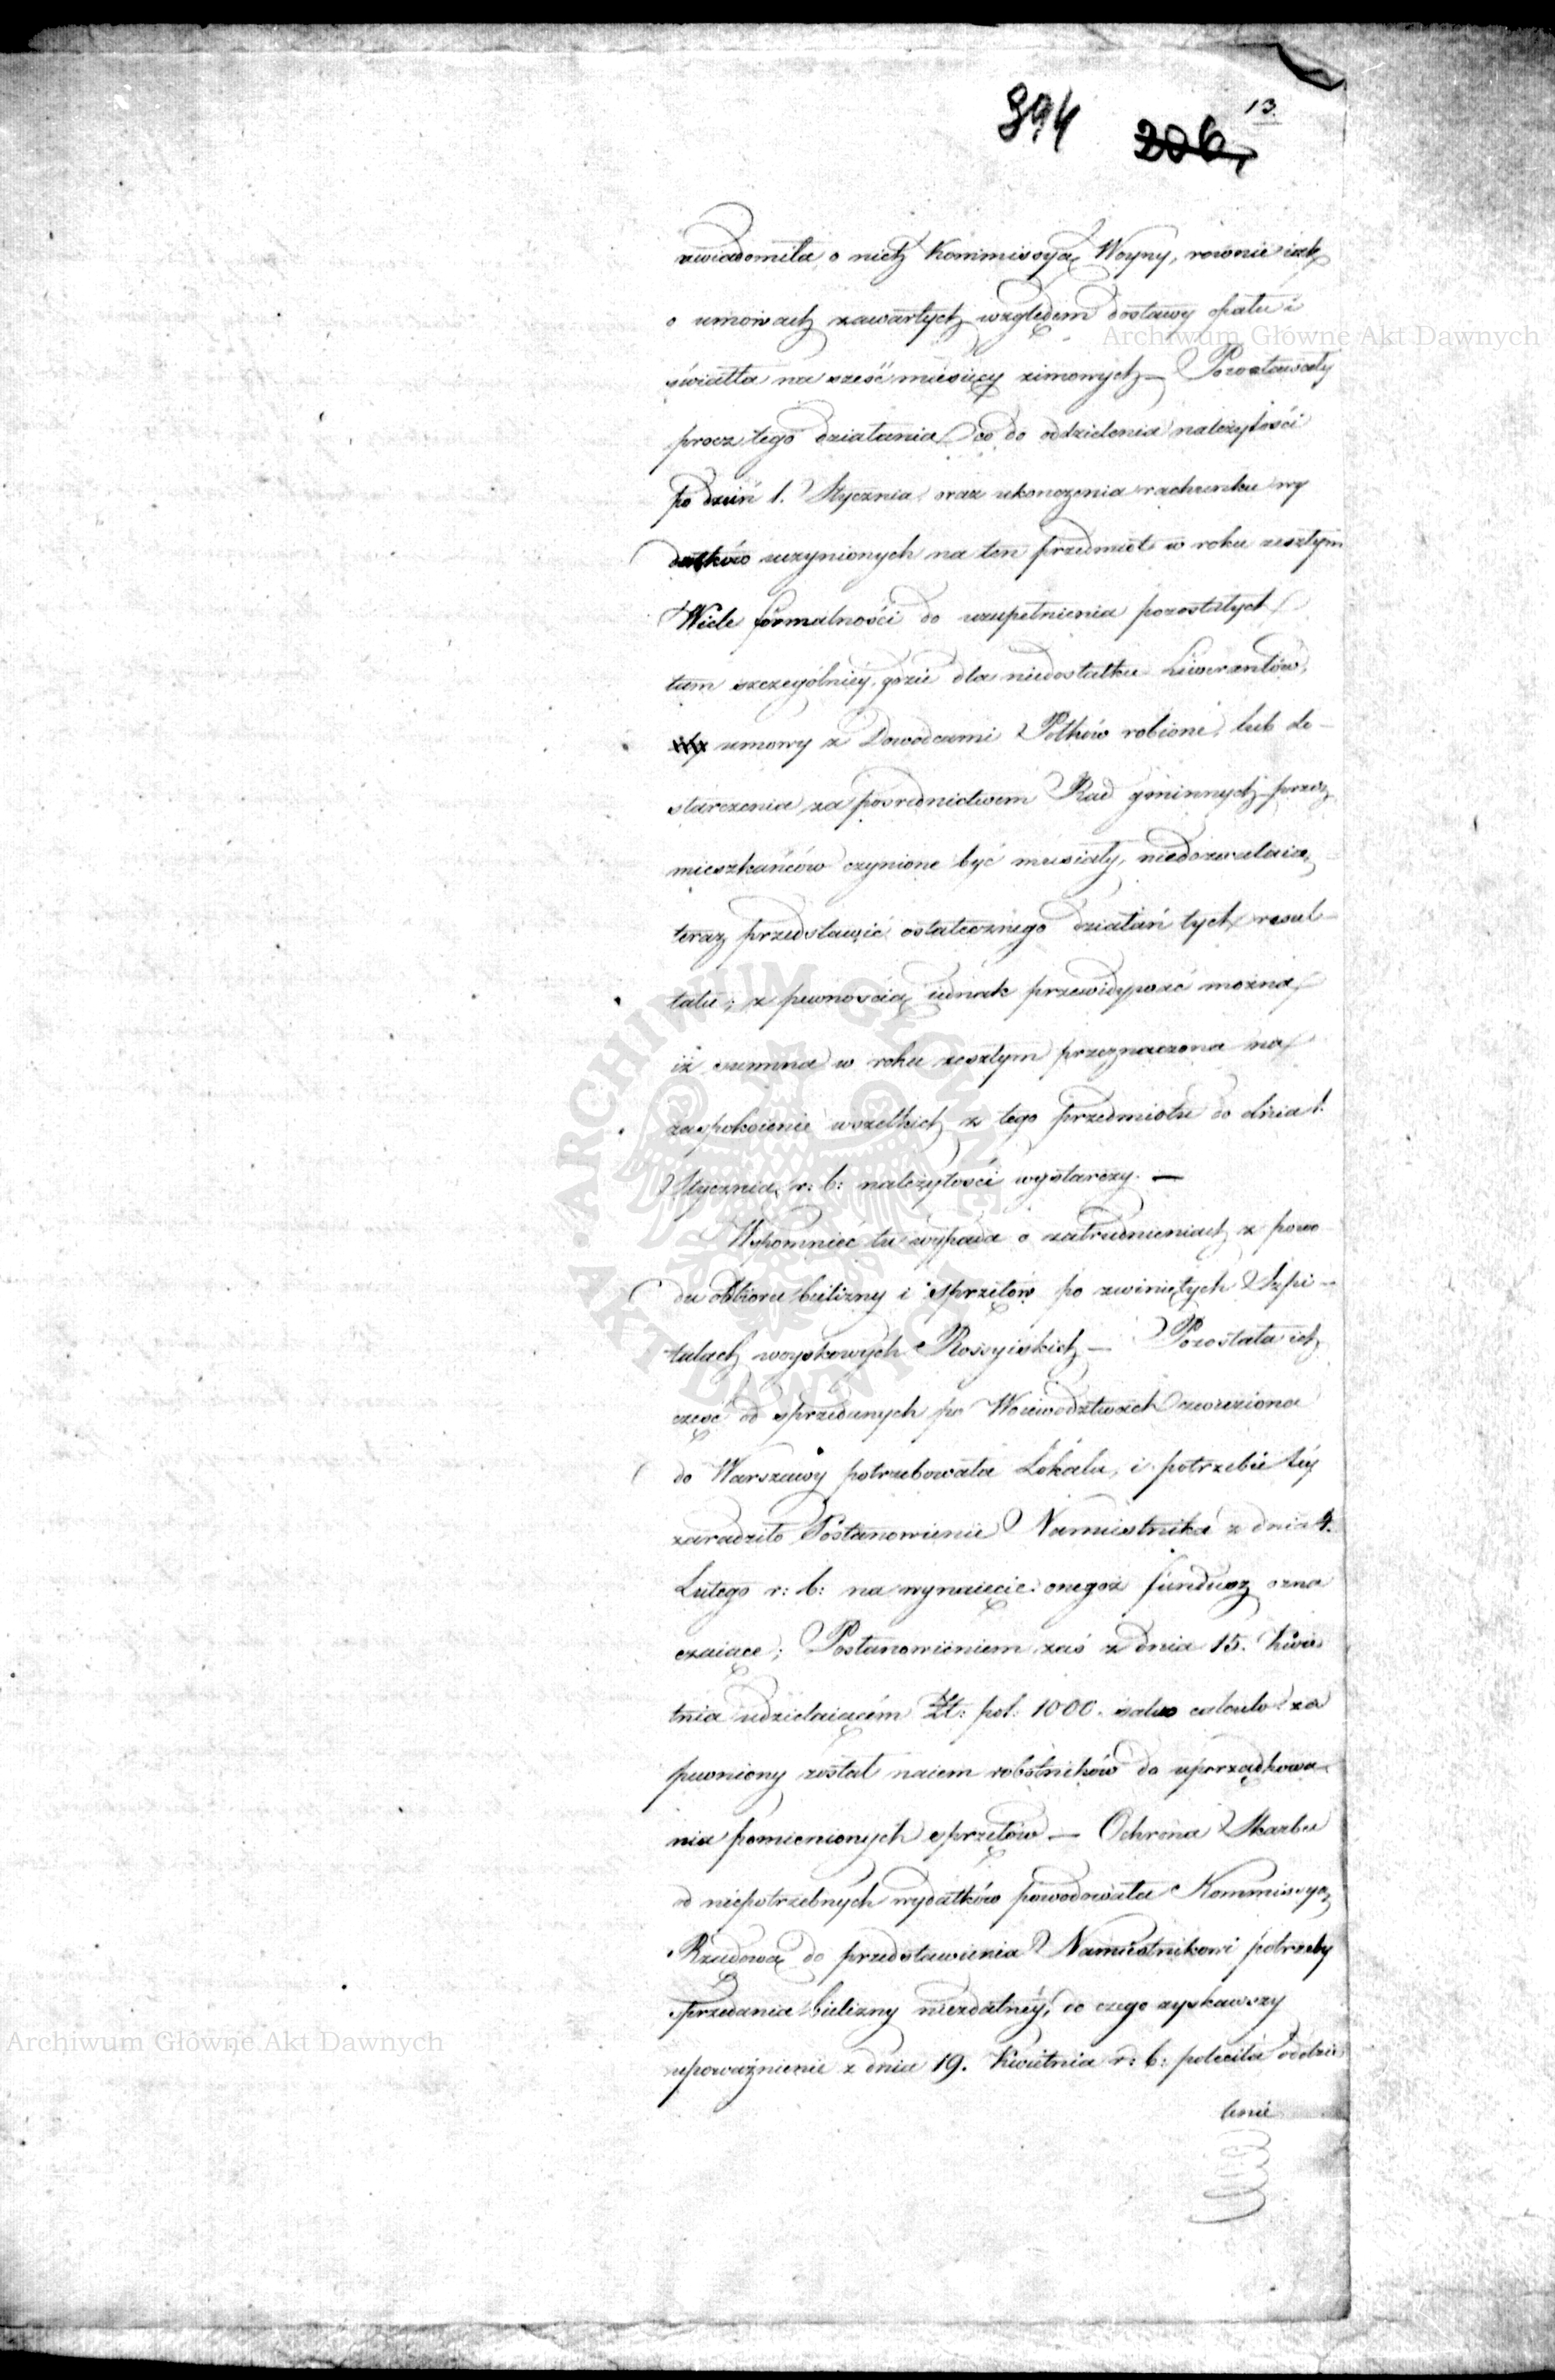 394 206. 13.
uwiadomiła o nich Kommissyą Woyny, rownie iak
o umowach zawartych względem dostawy opału i
Archiwum Główne Akt Dawnych
światła na sześć miesięcy zimowych — Pozostawały
procz tego działania co do oddzielenia należytości
po dzień 1. Stycznia oraz ukonczenia rachunku wy
datków uczynionych na ten przedmiot w roku zeszłym
Wiele formalności do uzupełnienia pozostałych
tam szczególniéy, gdzie dla niedostatku Liwerantów,
umowy z Dowodcami Połków robione, lub do-
starczenia za posrednictwem Rad gminnych przez
mieszkańców czynione być musiały, niedozwalaią
teraz przedstawić ostatecznego działań tych resul-
tatu; z pewnoscią iednak przewidywać można
iż summa w roku zeszłym przeznaczona na
zaspokoienie wszelkich z tego przedmiotu do dnia 1.
Stycznia r: b: należytości wystarczy. —
Wspomnieć tu wypada o zatrudnieniach z powo
du odbioru bielizny i sprzętów po zwiniętych Szpi-
talach woyskowych Rossyiskich — Pozostała ich
częsć od sprzedanych po Woiewodztwach zwieziona
do Warszawy potrzebowała Lokalu, i potrzebie téy
zaradziło Postanowienie Namiestnika z dnia 4.
Lutego r: b: na wynaięcie onegoż fundusz ozna
czaiące; Postanowieniem zaś z dnia 15. Kwie
tnia udzielaiącém Zł: pol: 1000. salvo calculo za
pewniony został naiem robotników do uporządkowa-
nia pomienionych sprzętów — Ochrona Skarbu
od niepotrzebnych wydatków powodowała Kommissyą
Rządową do przedstawienia Namiestnikowi potrzeby
sprzedania bielizny niezdatnéy, do czego zyskawszy
Archiwum Główne Akt Dawnych
upoważnienie z dnia 19. Kwietnia r: b: poleciła oddzie
lenie
ARCHIWUM GŁÓWNE AKT DAWNYCH